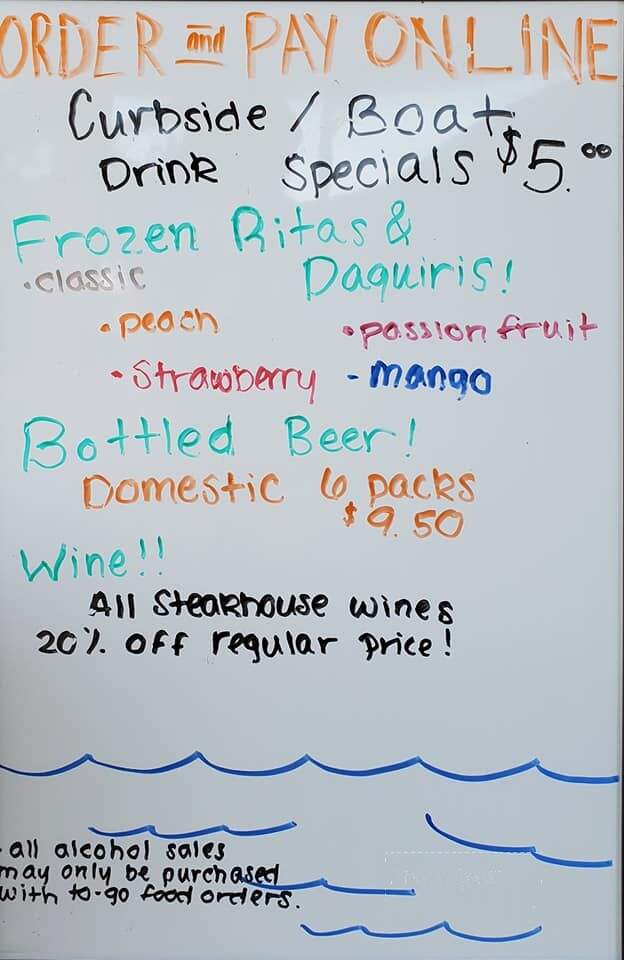 ORDER and PAY ONLINE
Curbside / Boat
Drink Specials $5.00
Frozen Ritas &
Daquiris!
• classic
• peach
• passion fruit
• Strawberry
- mango
Bottled Beer!
Domestic 6 packs
$9.50
Wine!!
All Steakhouse wines
20% off regular price!
- all alcohol sales
may only be purchased
with to-go food orders.